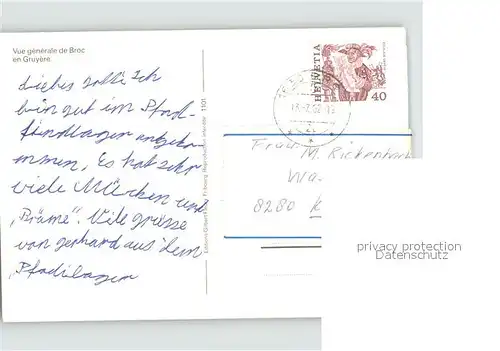 Vue générale de Broc
en Gruyère.
Liebes Gotti Ich
bin gut im Pfad-
findlager angeko-
mmen. Es hat sehr
viele Mücken und
„Bräme". Viele grüsse
von gerhard aus dem
Pfadilager
1101
HELVETIA
40
Frau M. Rickenbach
Wa
8280 K
privacy protection
Datenschutz